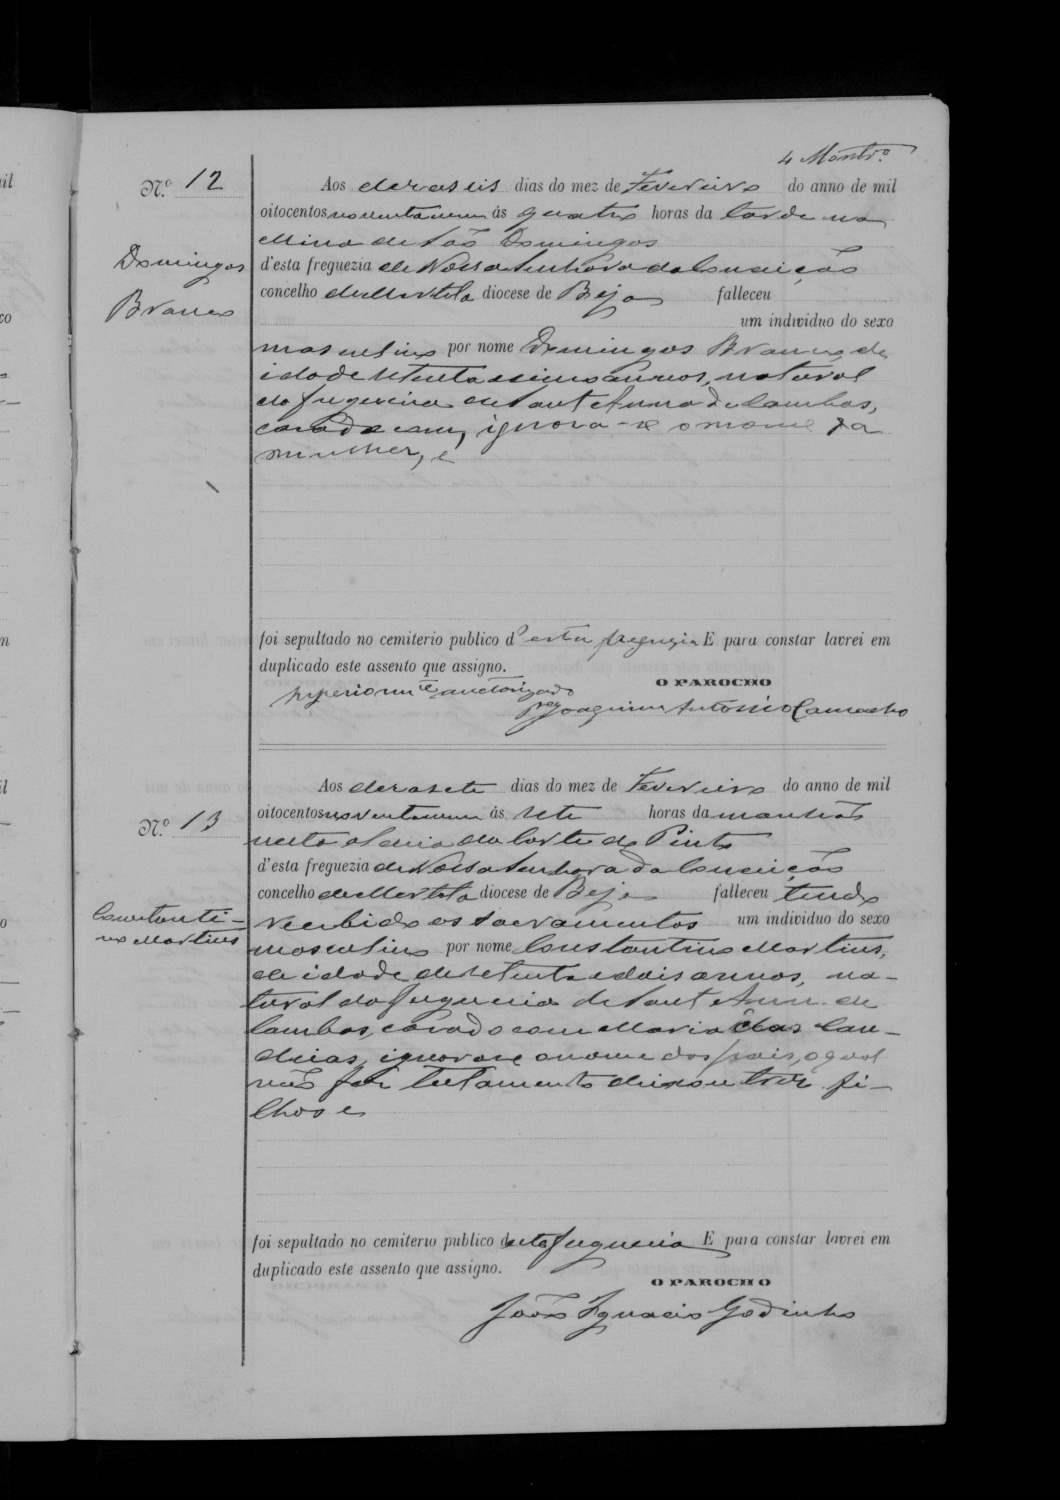 4 Montrº
Nº 12
Domingos
Branco
Aos deraseis dias do mez de Fevereiro do anno de mil
oitocentos noventa e um ás quatro horas da tarde na
Mina de São Domingos
d'esta freguezia de Nossa Senhora da Conceição
concelho de Mertola diocese de Beja falleceu
um individuo do sexo
masculino por nome Domingos Branco, de
idade setenta e cinco annos, natural
da freguezia de Sant'Anna de Cambas,
casado com, ignora-se o nome da
mulher, e
foi sepultado no cemiterio publico d'esta freguezia E para constar lavrei em
duplicado este assento que assigno.
O PAROCHO
auctorizado
Joaquim Antonio Camacho
Nº 13
Constanti-
no Martins
Aos derasete dias do mez de Fevereiro do anno de mil
oitocentos noventa e um ás sete horas da manhã
nesta aldeia da Corte do Pinto
d'esta freguezia de Nossa Senhora da Conceição
concelho de Mertola diocese de Beja falleceu tendo
recebido os sacramentos um individuo do sexo
masculino por nome Constantino Martins,
de idade de setenta e dois annos, na-
tural da freguezia de Sant'Anna de
Cambas, casado com Maria das Can-
deias, ignora-se o nome dos pais, o qual
não fez testamento deixou trez fi-
lhos e
foi sepultado no cemiterio publico desta freguezia E para constar lavrei em
duplicado este assento que assigno.
O PAROCHO
João Ignacio Godinho